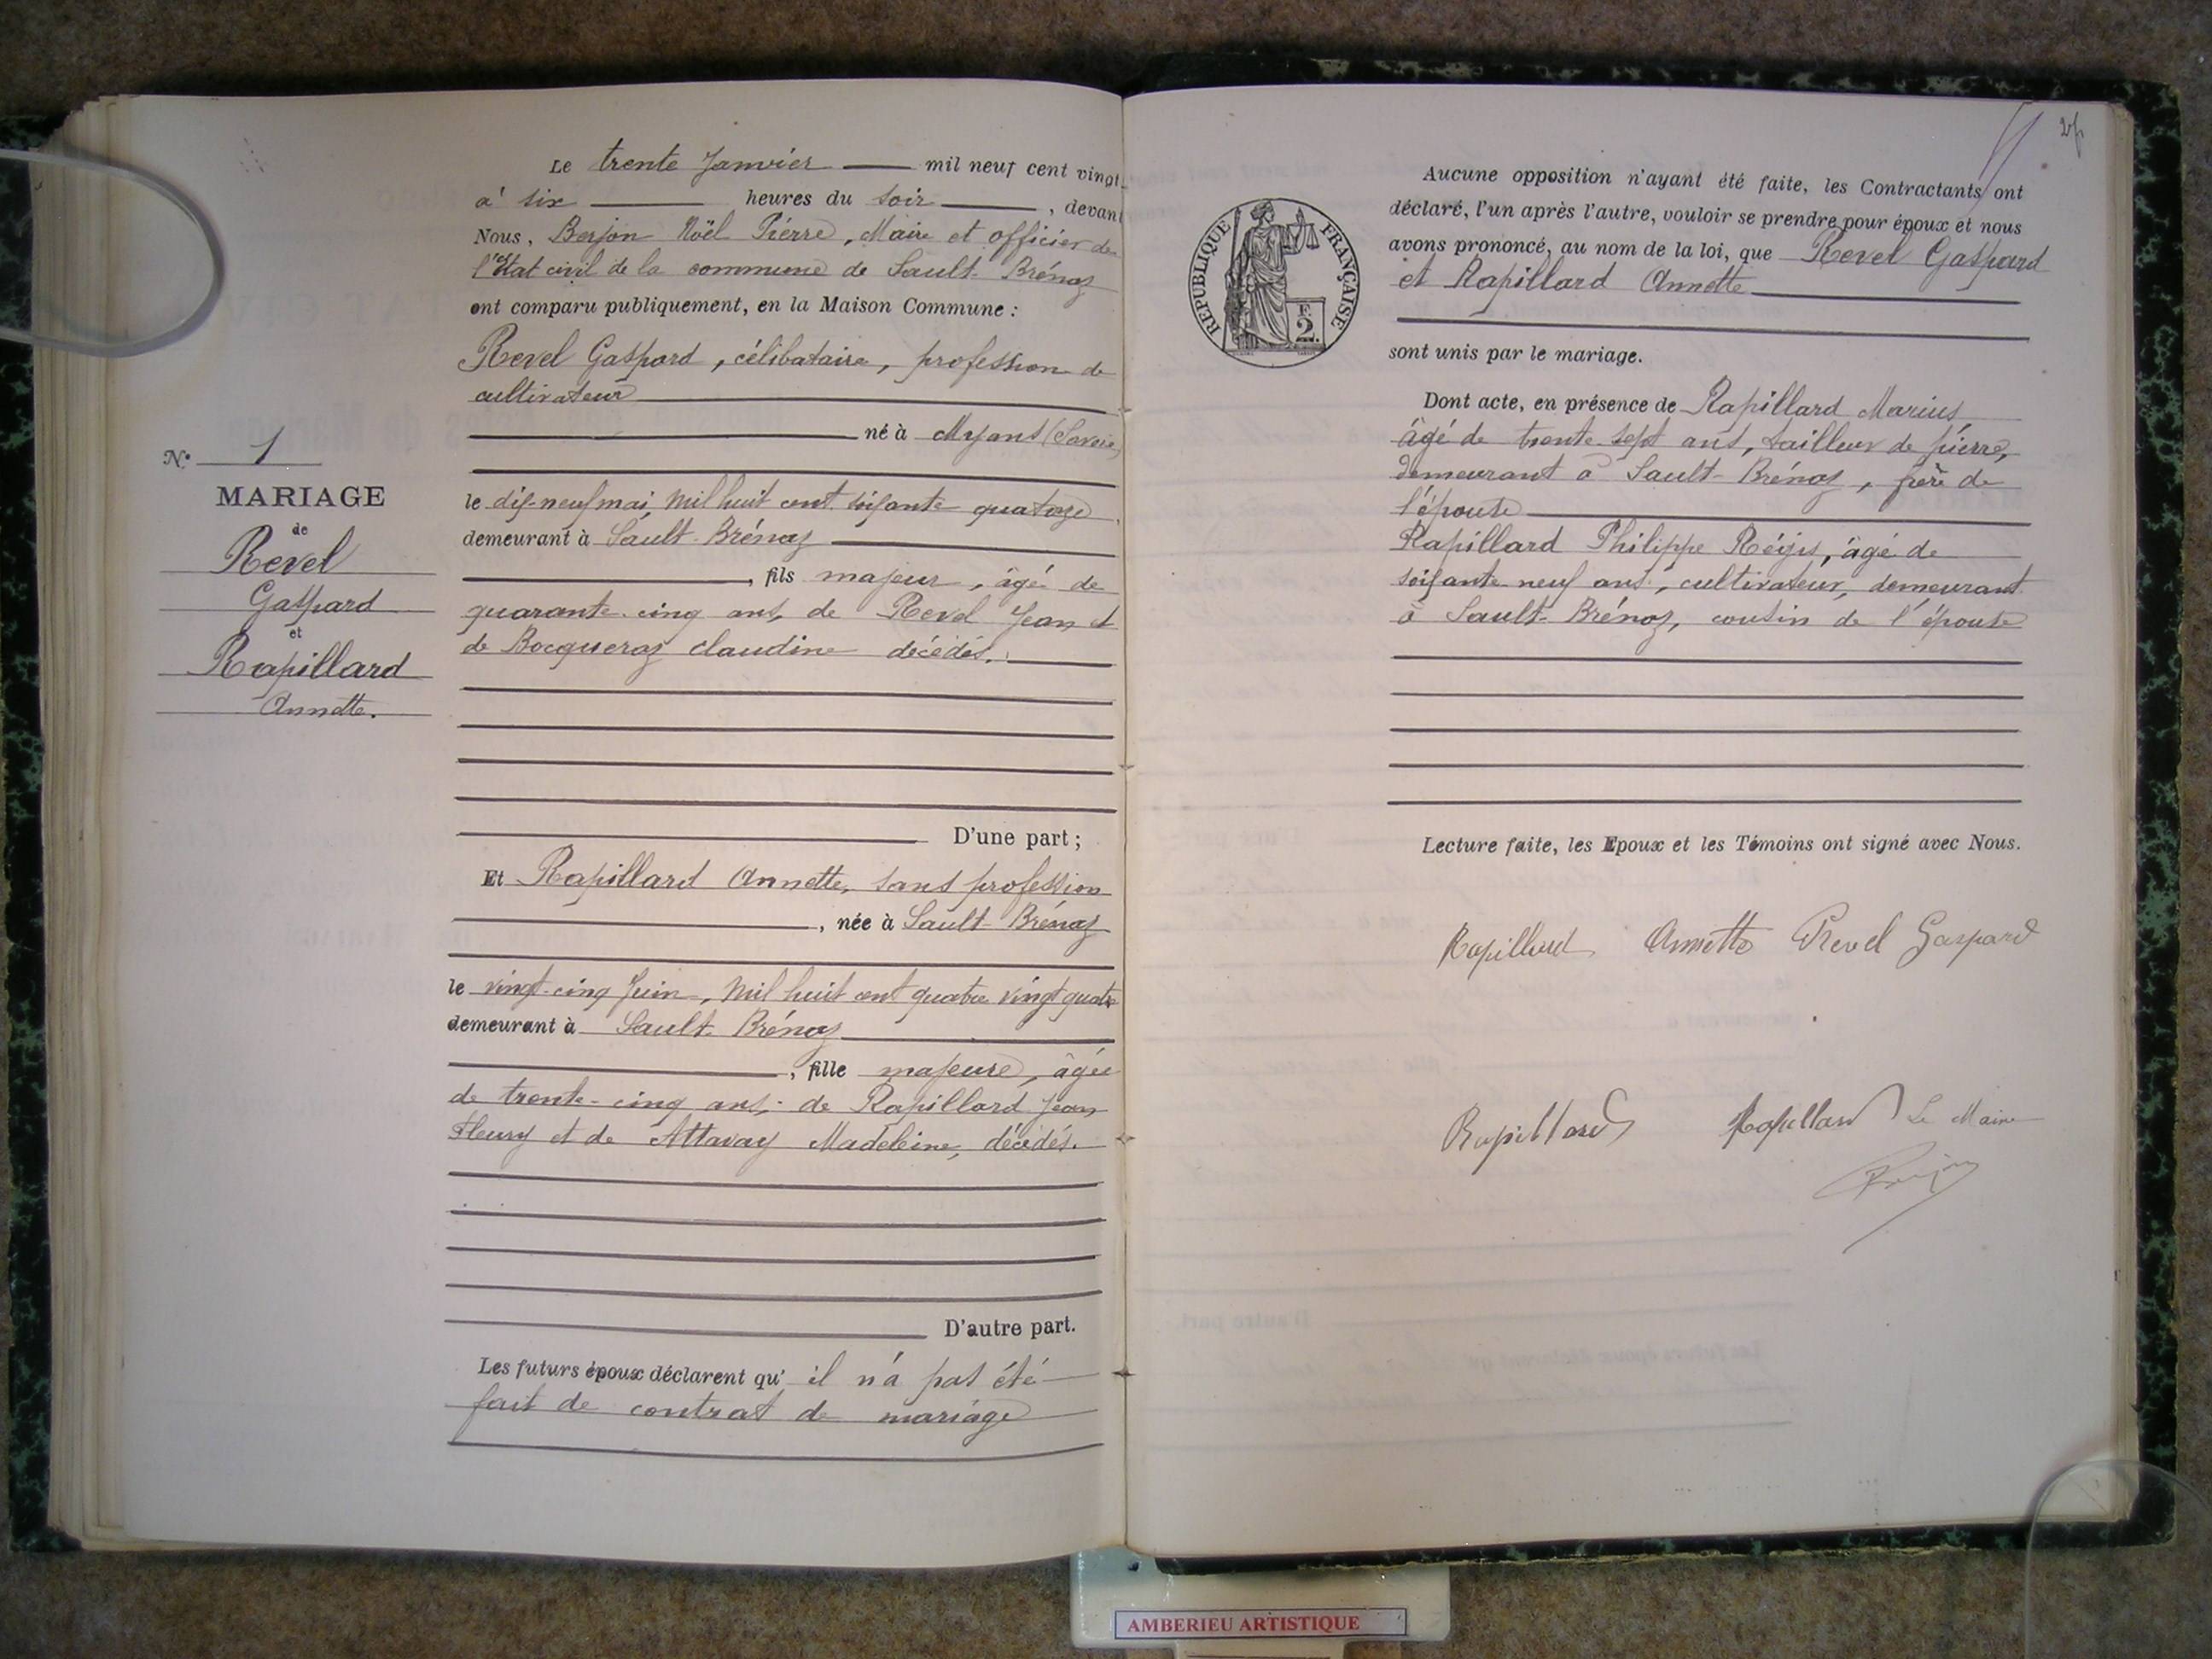 Le trente Janvier mil neuf cent vingt
à six heures du soir, devant
Nous, Berjon Noël Pierre, Maire et officier de
l'Etat civil de la commune de Sault-Brénaz
ont comparu publiquement, en la Maison Commune :
Revel Gaspard, célibataire, profession de
cultivateur
né à Myans (Savoie)
le dix-neuf mai, mil huit cent soixante quatorze
demeurant à Sault-Brénaz
, fils majeur, âgé de
quarante-cinq ans, de Revel Jean et
de Bocqueraz Claudine décédés.
D'une part ;
Et Rapillard Annette, sans profession
, née à Sault-Brénaz
le vingt-cinq Juin, mil huit cent quatre vingt quatre
demeurant à Sault-Brénaz
, fille majeure, âgée
de trente-cinq ans, de Rapillard Jean
Fleury et de Attavay Madeleine, décédés.
D'autre part.
Les futurs époux déclarent qu'il n'a pas été
fait de contrat de mariage
N° 1
MARIAGE
de
Revel
Gaspard
et
Rapillard
Annette.
Aucune opposition n'ayant été faite, les Contractants ont
déclaré, l'un après l'autre, vouloir se prendre pour époux et nous
avons prononcé, au nom de la loi, que Revel Gaspard
et Rapillard Annette
sont unis par le mariage.
Dont acte, en présence de Rapillard Marius
âgé de trente-sept ans, tailleur de pierre,
demeurant à Sault-Brénaz, frère de
l'épouse
Rapillard Philippe Régis, âgé de
soixante neuf ans, cultivateur, demeurant
à Sault-Brénaz, cousin de l'épouse
Lecture faite, les Epoux et les Témoins ont signé avec Nous.
Rapillard Annette Revel Gaspard
Rapillard Rapillard Le Maire
Berjon
REPUBLIQUE FRANÇAISE
F.
2.
AMBERIEU ARTISTIQUE